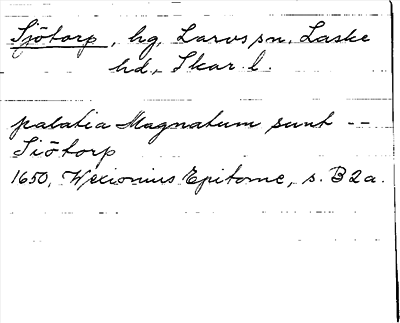 Sjötorp, hg, Larvs sn, Laske
hd., Skar. l.
palatia Magnatum sunt --
Siötorp
1650, Wexionius Epitome, s. B2a.